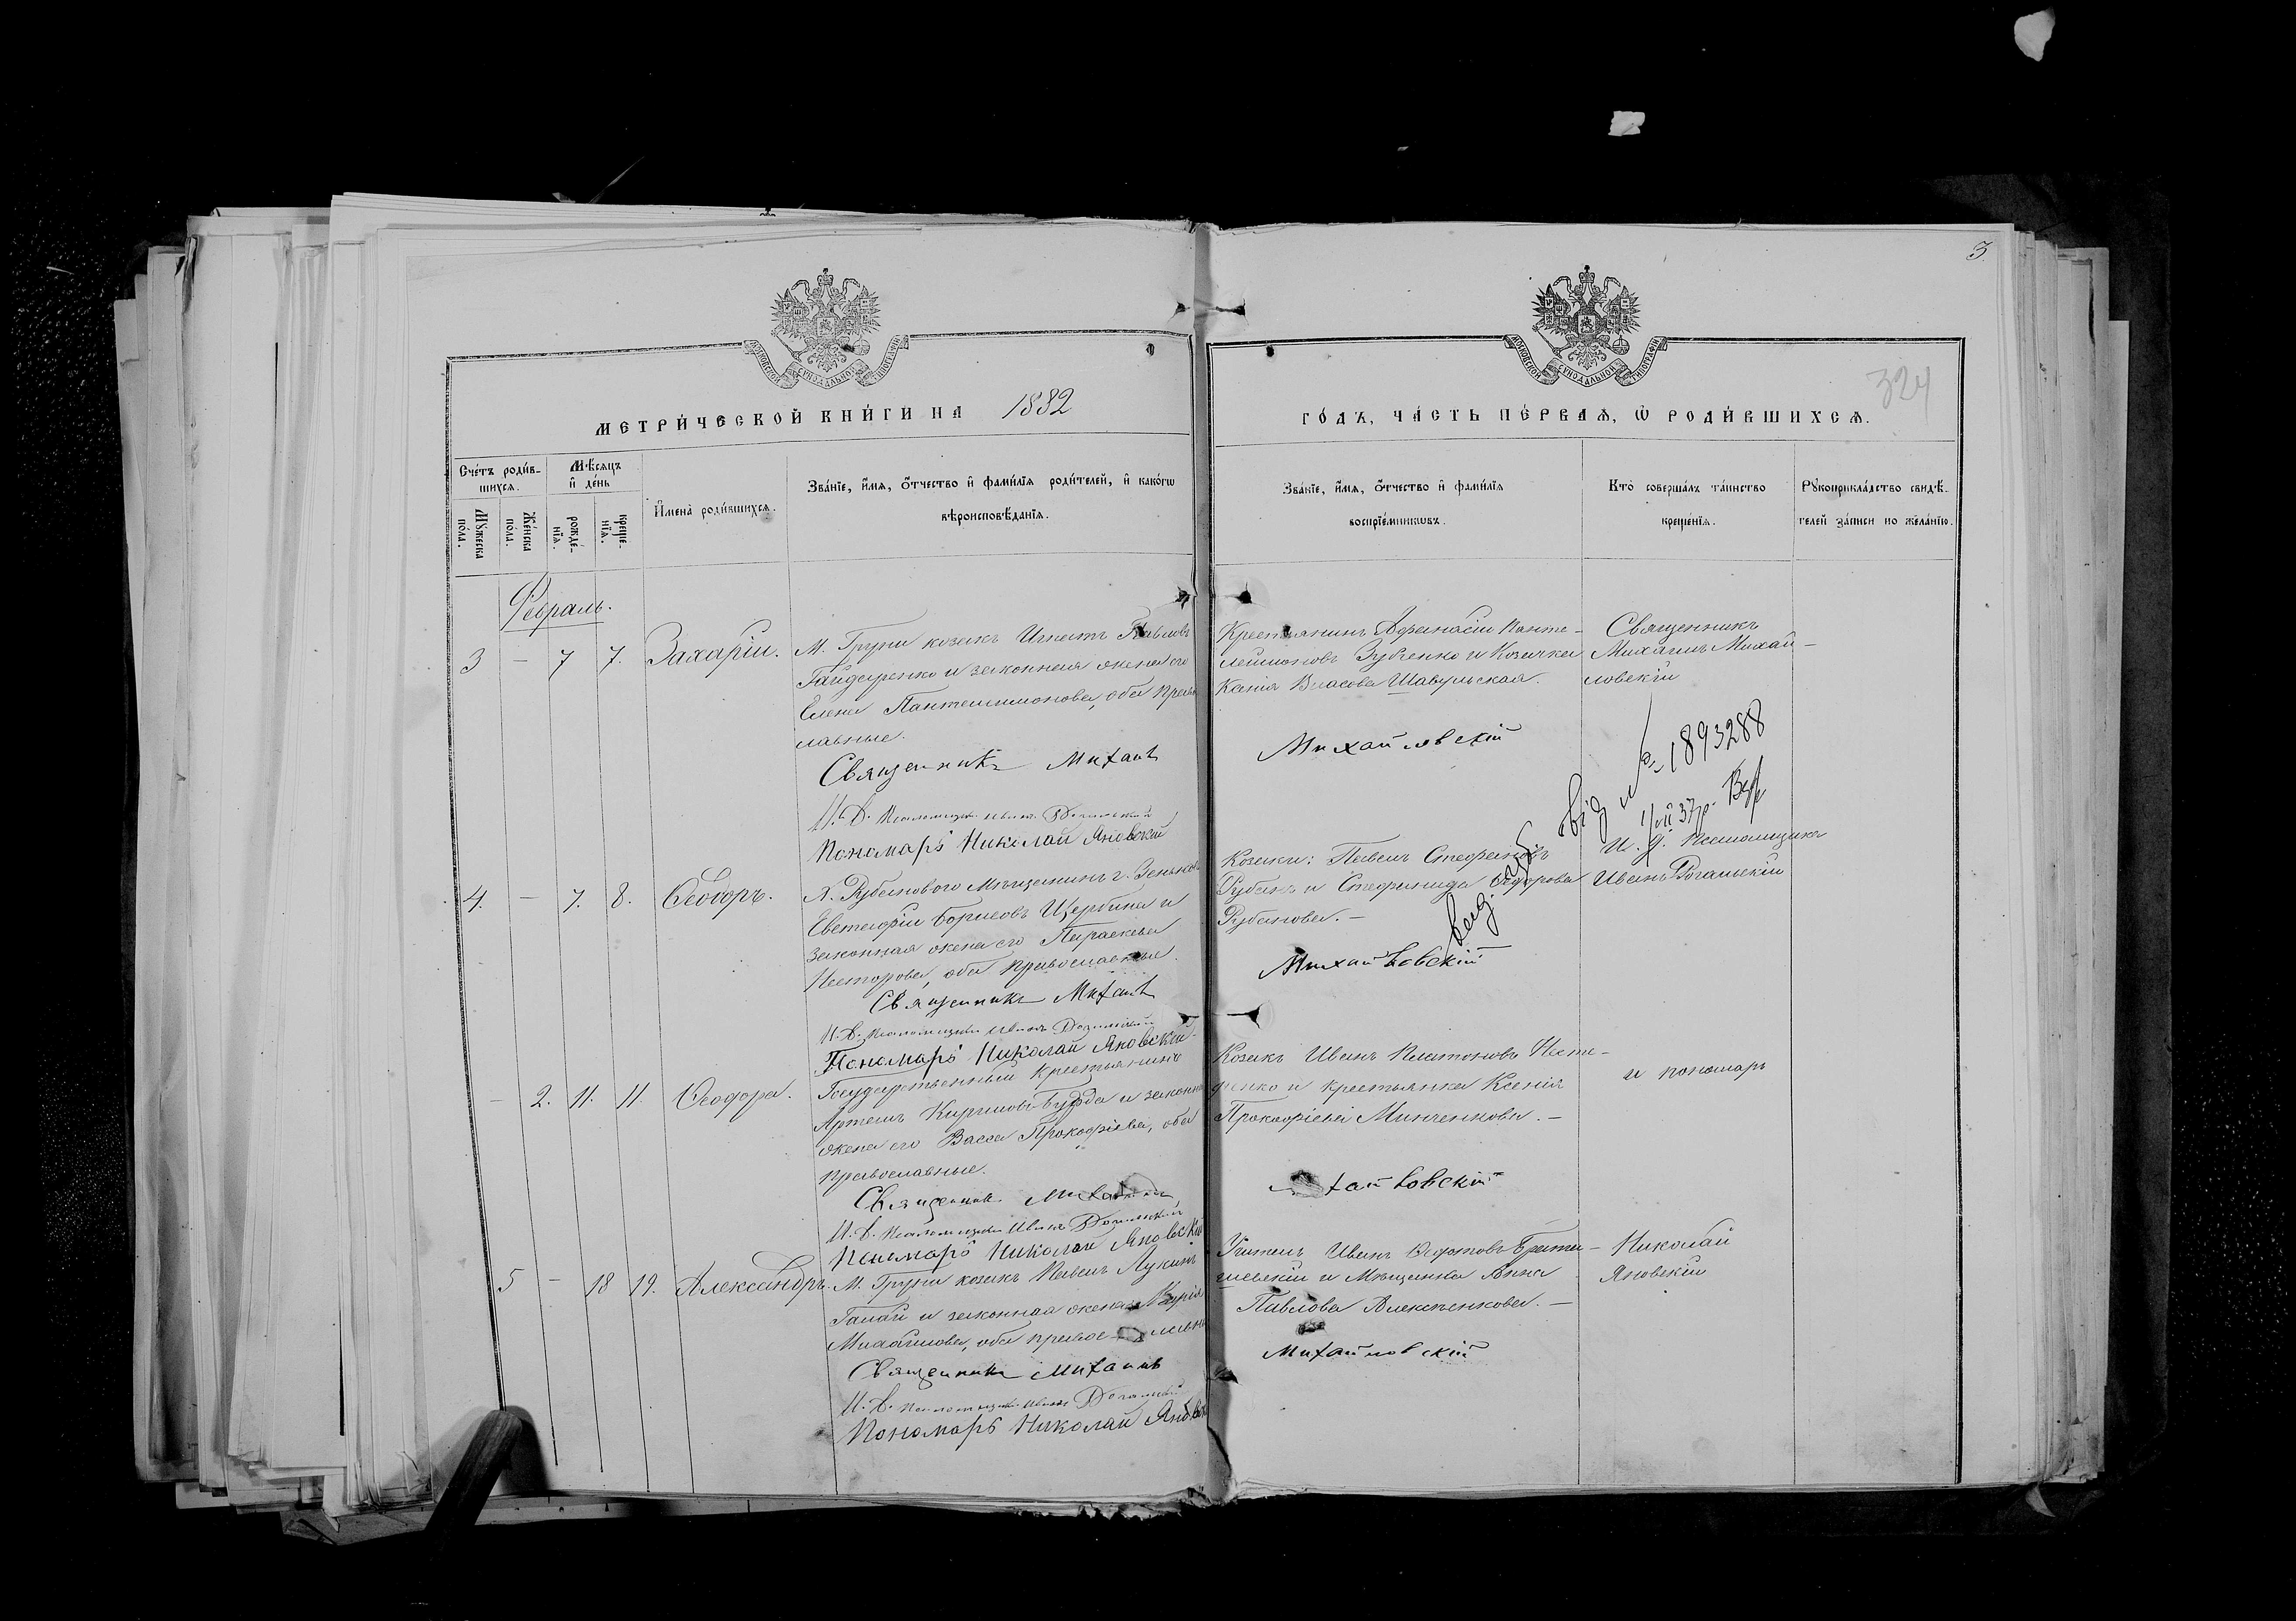 3
324
МЕТРИ́ЧЕСКОЙ КНИ́ГИ НА 1882
ГО́ДЪ, ЧА́СТЬ ПЕ́РВАѦ, Ѡ҆ РОДИ́ВШИХСѦ.
Сче́тъ роди́в-
шихсѧ.
Мѣ́сѧцъ
и҆ де́нь
Мꙋ́жеска
по́ла.
Же́нска
по́ла.
рожде́-
нїѧ.
креще́-
нїѧ.
И҆мена̀ роди́вшихсѧ.
Зва́нїе, и҆́мѧ, ѻ҆́тчество и҆ фами́лїѧ роди́телей, и҆ како́гѡ
вѣроисповѣ́данїѧ.
Зва́нїе, и҆́мѧ, ѻ҆́тчество и҆ фами́лїѧ
воспрїе́мникѡвъ.
Кто̀ соверша́лъ та́инство
креще́нїѧ.
Рꙋкоприкла́дство свидѣ́-
телей за́писи по жела́нїю.
Февраль.
3 – 7 7. Захарій.
М. Груни козакъ Игнатъ Павловъ
Гайдаренко и законная жена его
Елена Пантелимонова, оба право
славные.
Священникъ Михаилъ
И. Д. Псаломщика Иванъ
Пономарь Николай Яновскій
Крестьянинъ Афанасій Панте-
леимоновъ Зубченко и Козачка
Ксенія Власова Шавульская.
Михайловскій
Священникъ
Михаилъ Михай-
ловскій
№ 1893288
4. – 7. 8. Ѳеодоръ.
Х. Рубановаго Мѣщанинъ г. Зенькова
Евстафій Борисовъ Щербина и
законная жена его Параскева
Несторова, оба православные.
Священникъ Михаилъ
И. Д. Псаломщика Иванъ
Пономарь Николай Яновскій
Козаки: Павелъ Стефановъ
Рубанъ и Стефанида Ѳедорова
Рубанова. –
Михайловскій
И. д. Псаломщика
Иванъ
– 2. 11. 11. Ѳеодора.
Государственный крестьянинъ
Артемъ Кириловъ Бурда и законна
жена его Васса Прокофіева, оба
православные.
Священникъ Михаилъ
И. Д. Псаломщика Иванъ
Пономарь Николай Яновскій
Козакъ Иванъ Платоновъ Несте-
ренко и крестьянка Ксенія
Прокофіева Минченкова. –
Михайловскій
и пономарь
5 – 18 19. Александръ.
М. Груни козакъ Павелъ Лукинъ
Галай и законная жена Марія
Михайлова, оба православны
Священникъ Михаилъ
И. Д. Псаломщика Иванъ
Пономарь Николай Яновск
Учитель Иванъ
и Мѣщанка Анна
Павлова Алексѣенкова. –
Михайловскій
Николай
Яновскій